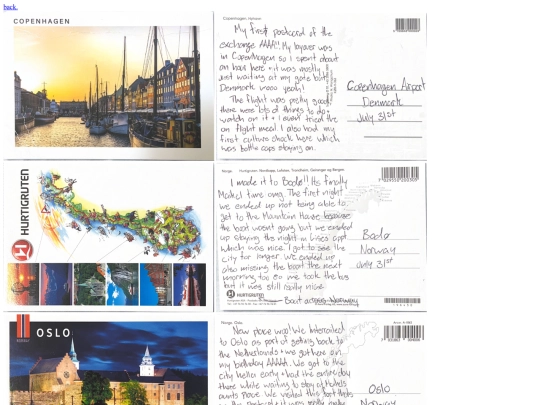 back.
COPENHAGEN
Copenhagen, Nyhavn
My first postcard of the
exchange AAAA!! My layover was
in Copenhagen so I spent about
an hour here + it was mostly
just waiting at my gate but
Denmark wooo yeah!
The flight was pretty good
there were lots of things to do +
watch on it + I even tried the
on flight meal. I also had my
first culture shock here which
was bottle caps staying on.
Copenhagen Airport
Denmark
July 31st
HURTIGRUTEN
Norge
I made it to Bodø!! Its finally
time omg. The first night
we ended up not being able to
get to the Mountain House because
the boat wasn't going but we ended
up staying the night in apt
which was nice. I got to see the
city for longer. We ended up
also missing the boat the next
morning too so we took the bus
but it was still really nice.
Boat across Norway
Bodø
Norway
July 31st
HURTIGRUTEN
OSLO
Norge, Oslo
New place woo! We Interrailed
to Oslo as part of getting back to
the Netherlands + we got there on
my birthday AAAAA. We got to the
city earlier + had the entire day
there while waiting to stay at
aunts place. We visited this fort thats
Oslo
Norway